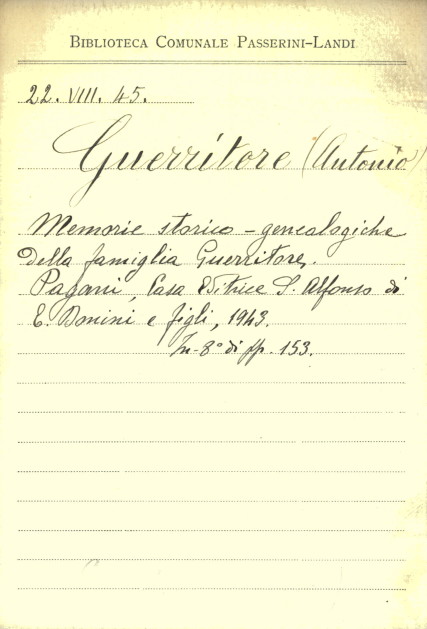 BIBLIOTECA COMUNALE PASSERINI-LANDI
22. VIII. 45.
Guerritore (Antonio)
Memorie storico - genealogiche
della famiglia Guerritore.
Pagani, Casa Editrice S. Alfonso di
E. Donini e figli, 1943.
In-8° di pp. 153.